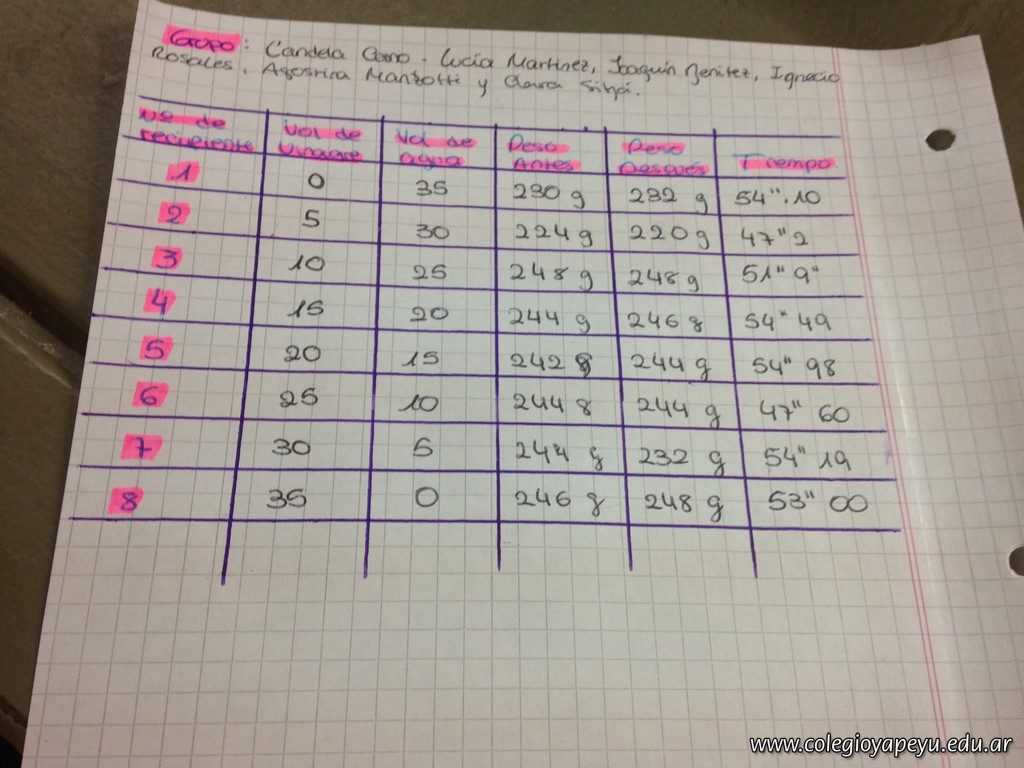 Grupo: Candela Cano. Lucía Martinez, Joaquín Benitez, Ignacio
Rosales, Agostina Manzotti y Clara
Nº de recipiente Vol de Vinagre Vol de agua Peso Antes Peso Después Tiempo
1 0 35 230 g 232 g 54".10
2 5 30 224 g 220 g 47"2
3 10 25 248 g 248 g 51"9"
4 15 20 244 g 246 g 54" 49
5 20 15 242 g 244 g 54" 98
6 25 10 244 g 244 g 47" 60
7 30 5 244 g 232 g 54" 19
8 35 0 246 g 248 g 53" 00
www.colegioyapeyu.edu.ar